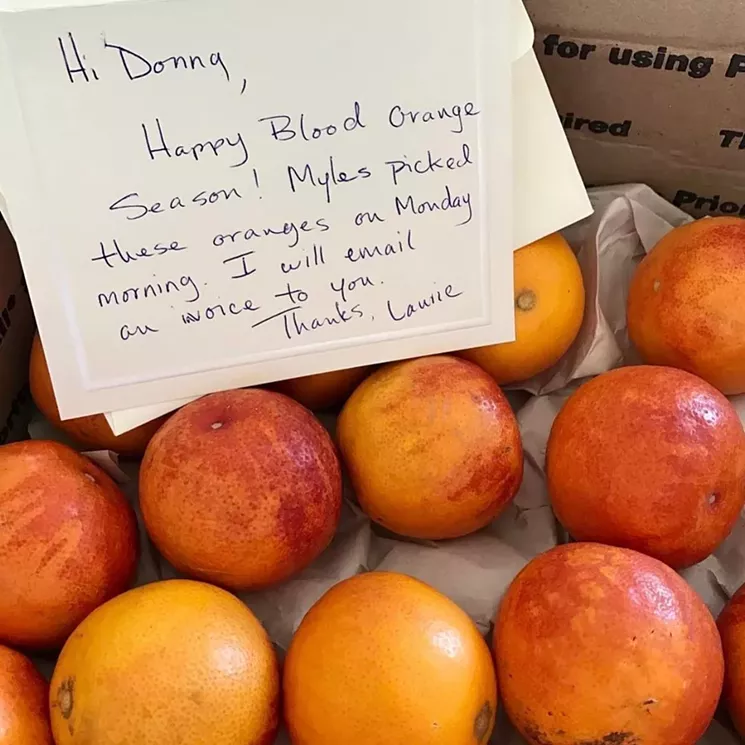 Hi Donna,
Happy Blood Orange
Season! Myles picked
these oranges on Monday
morning. I will email
an invoice to you.
Thanks, Laurie
for using P
ired
Th
Prior